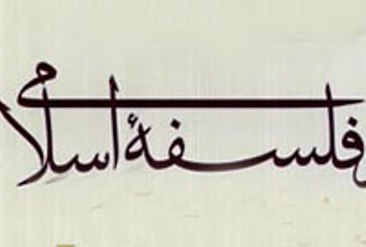 فلسفهٔ اسلامی